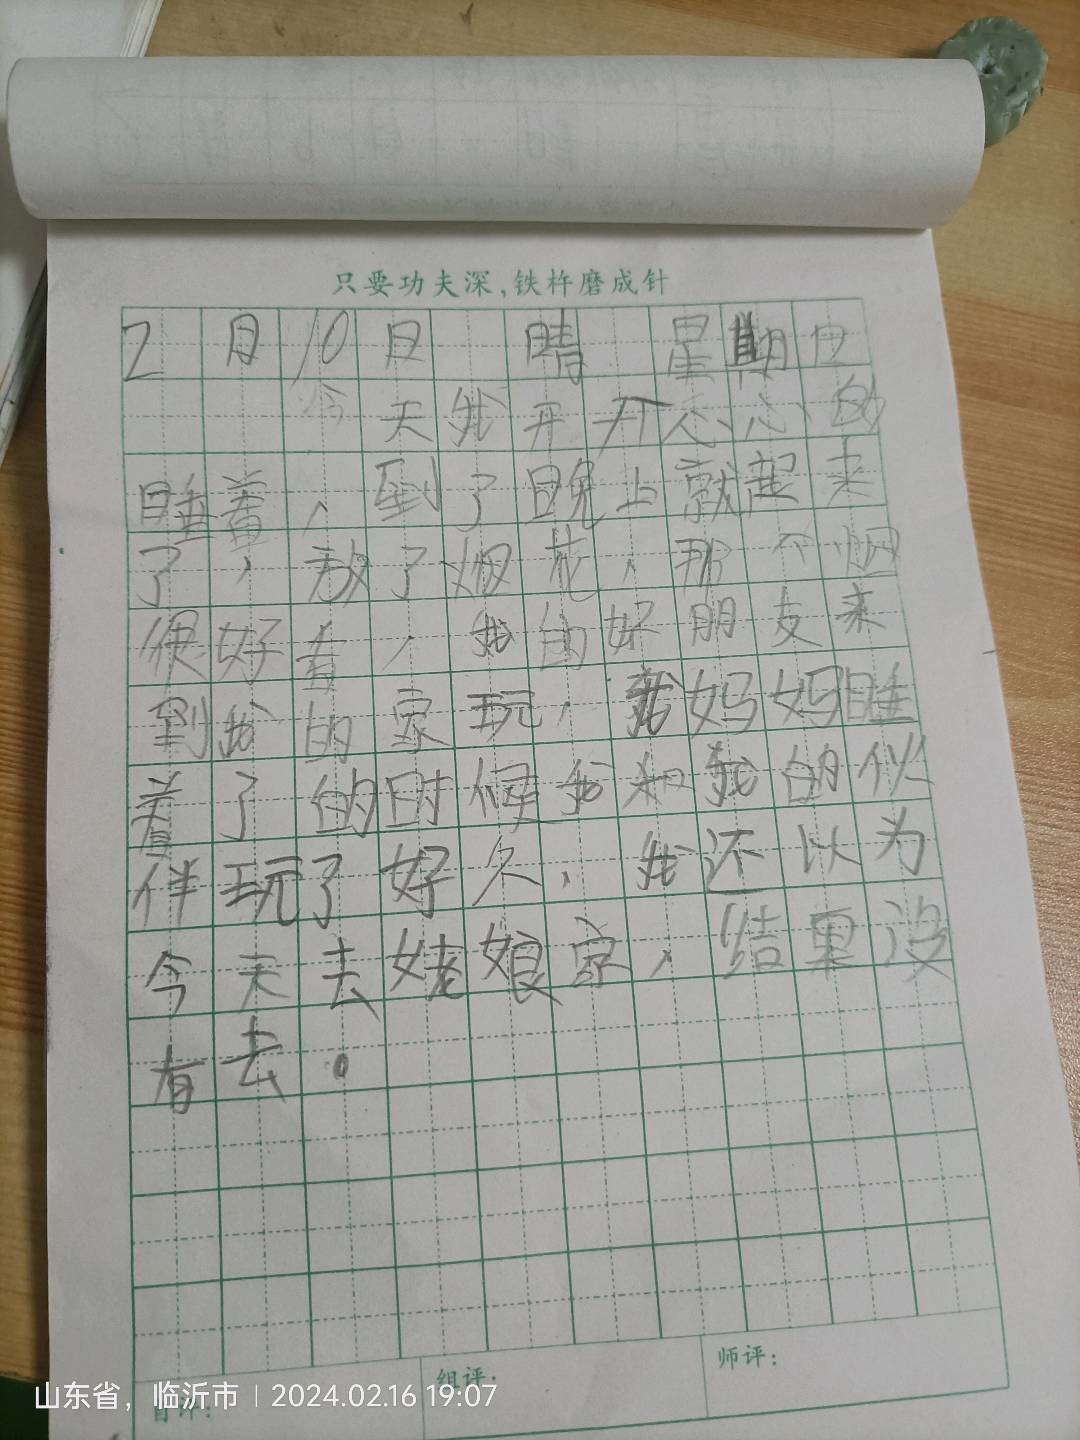 只要功夫深,铁杵磨成针
2月10日 晴 星期日
今天我开开心心的
睡着,到了晚上就起来
了,放了烟花,那个烟
很好看,我的好朋友来
到我的家玩,我妈妈睡
着了的时候我和我的伙
伴玩了好久,我还以为
今天去姥娘家,结果没
有去。
自评:
组评:
师评:
山东省，临沂市 | 2024.02.16 19:07